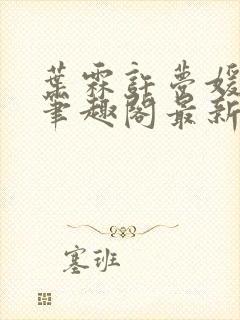 葉霖許夢媛
筆趣閣最新
塞班